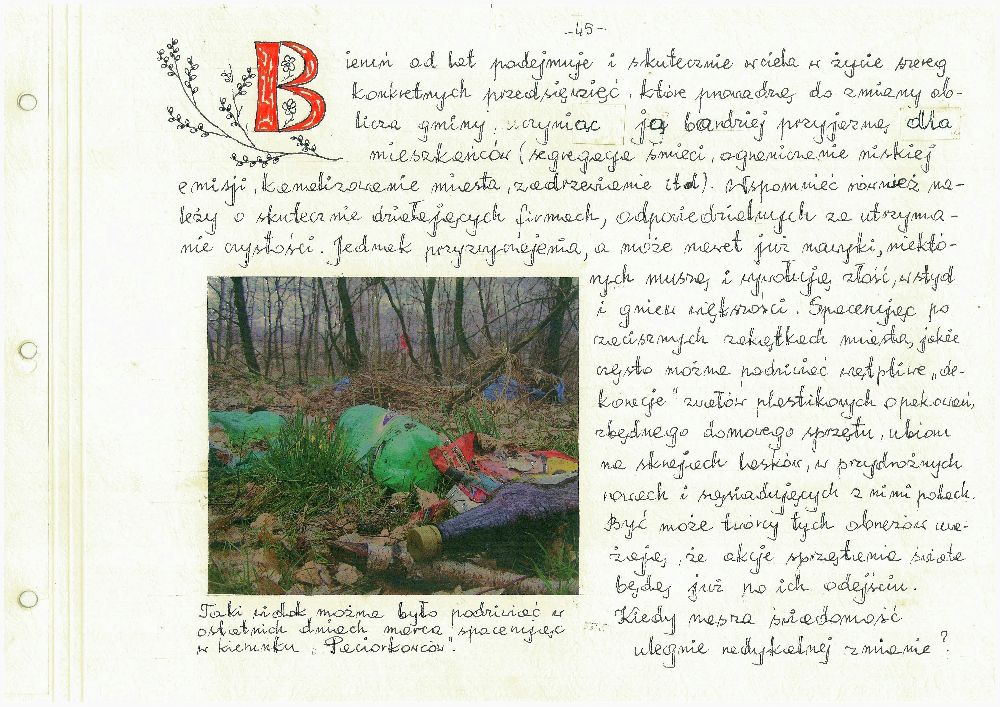 -45-
Bieruń od lat podejmuje i skutecznie wciela w życie szereg
konkretnych przedsięwzięć, które prowadzą do zmiany ob-
licza gminy, czyniąc ją bardziej przyjazną dla
mieszkańców (segregacja śmieci, ograniczenie niskiej
emisji, kanalizowanie miasta, zadrzewianie itd). Wspomnieć również na-
leży o skutecznie działających firmach, odpowiedzialnych za utrzyma-
nie czystości. Jednak przyzwyczajenia, a może nawet już nawyki, niektó-
rych muszą i wywołują złość, wstyd
i gniew większości. Spacerując po
zacisznych zakątkach miasta, jakże
często można podziwiać wątpliwe „de-
koracje" zwałów plastikowych opakowań,
zbędnego domowego sprzętu, ubrań
na skrajach lasków, w przydrożnych
rowach i sąsiadujących z nimi polach.
Być może twórcy tych obrazów uwa-
żają, że akcje sprzątania świata
będą już po ich odejściu.
Kiedy nasza świadomość
ulegnie radykalnej zmianie?
Taki widok można było podziwiać w
ostatnich dniach marca spacerując
w kierunku „Paciorkowców".